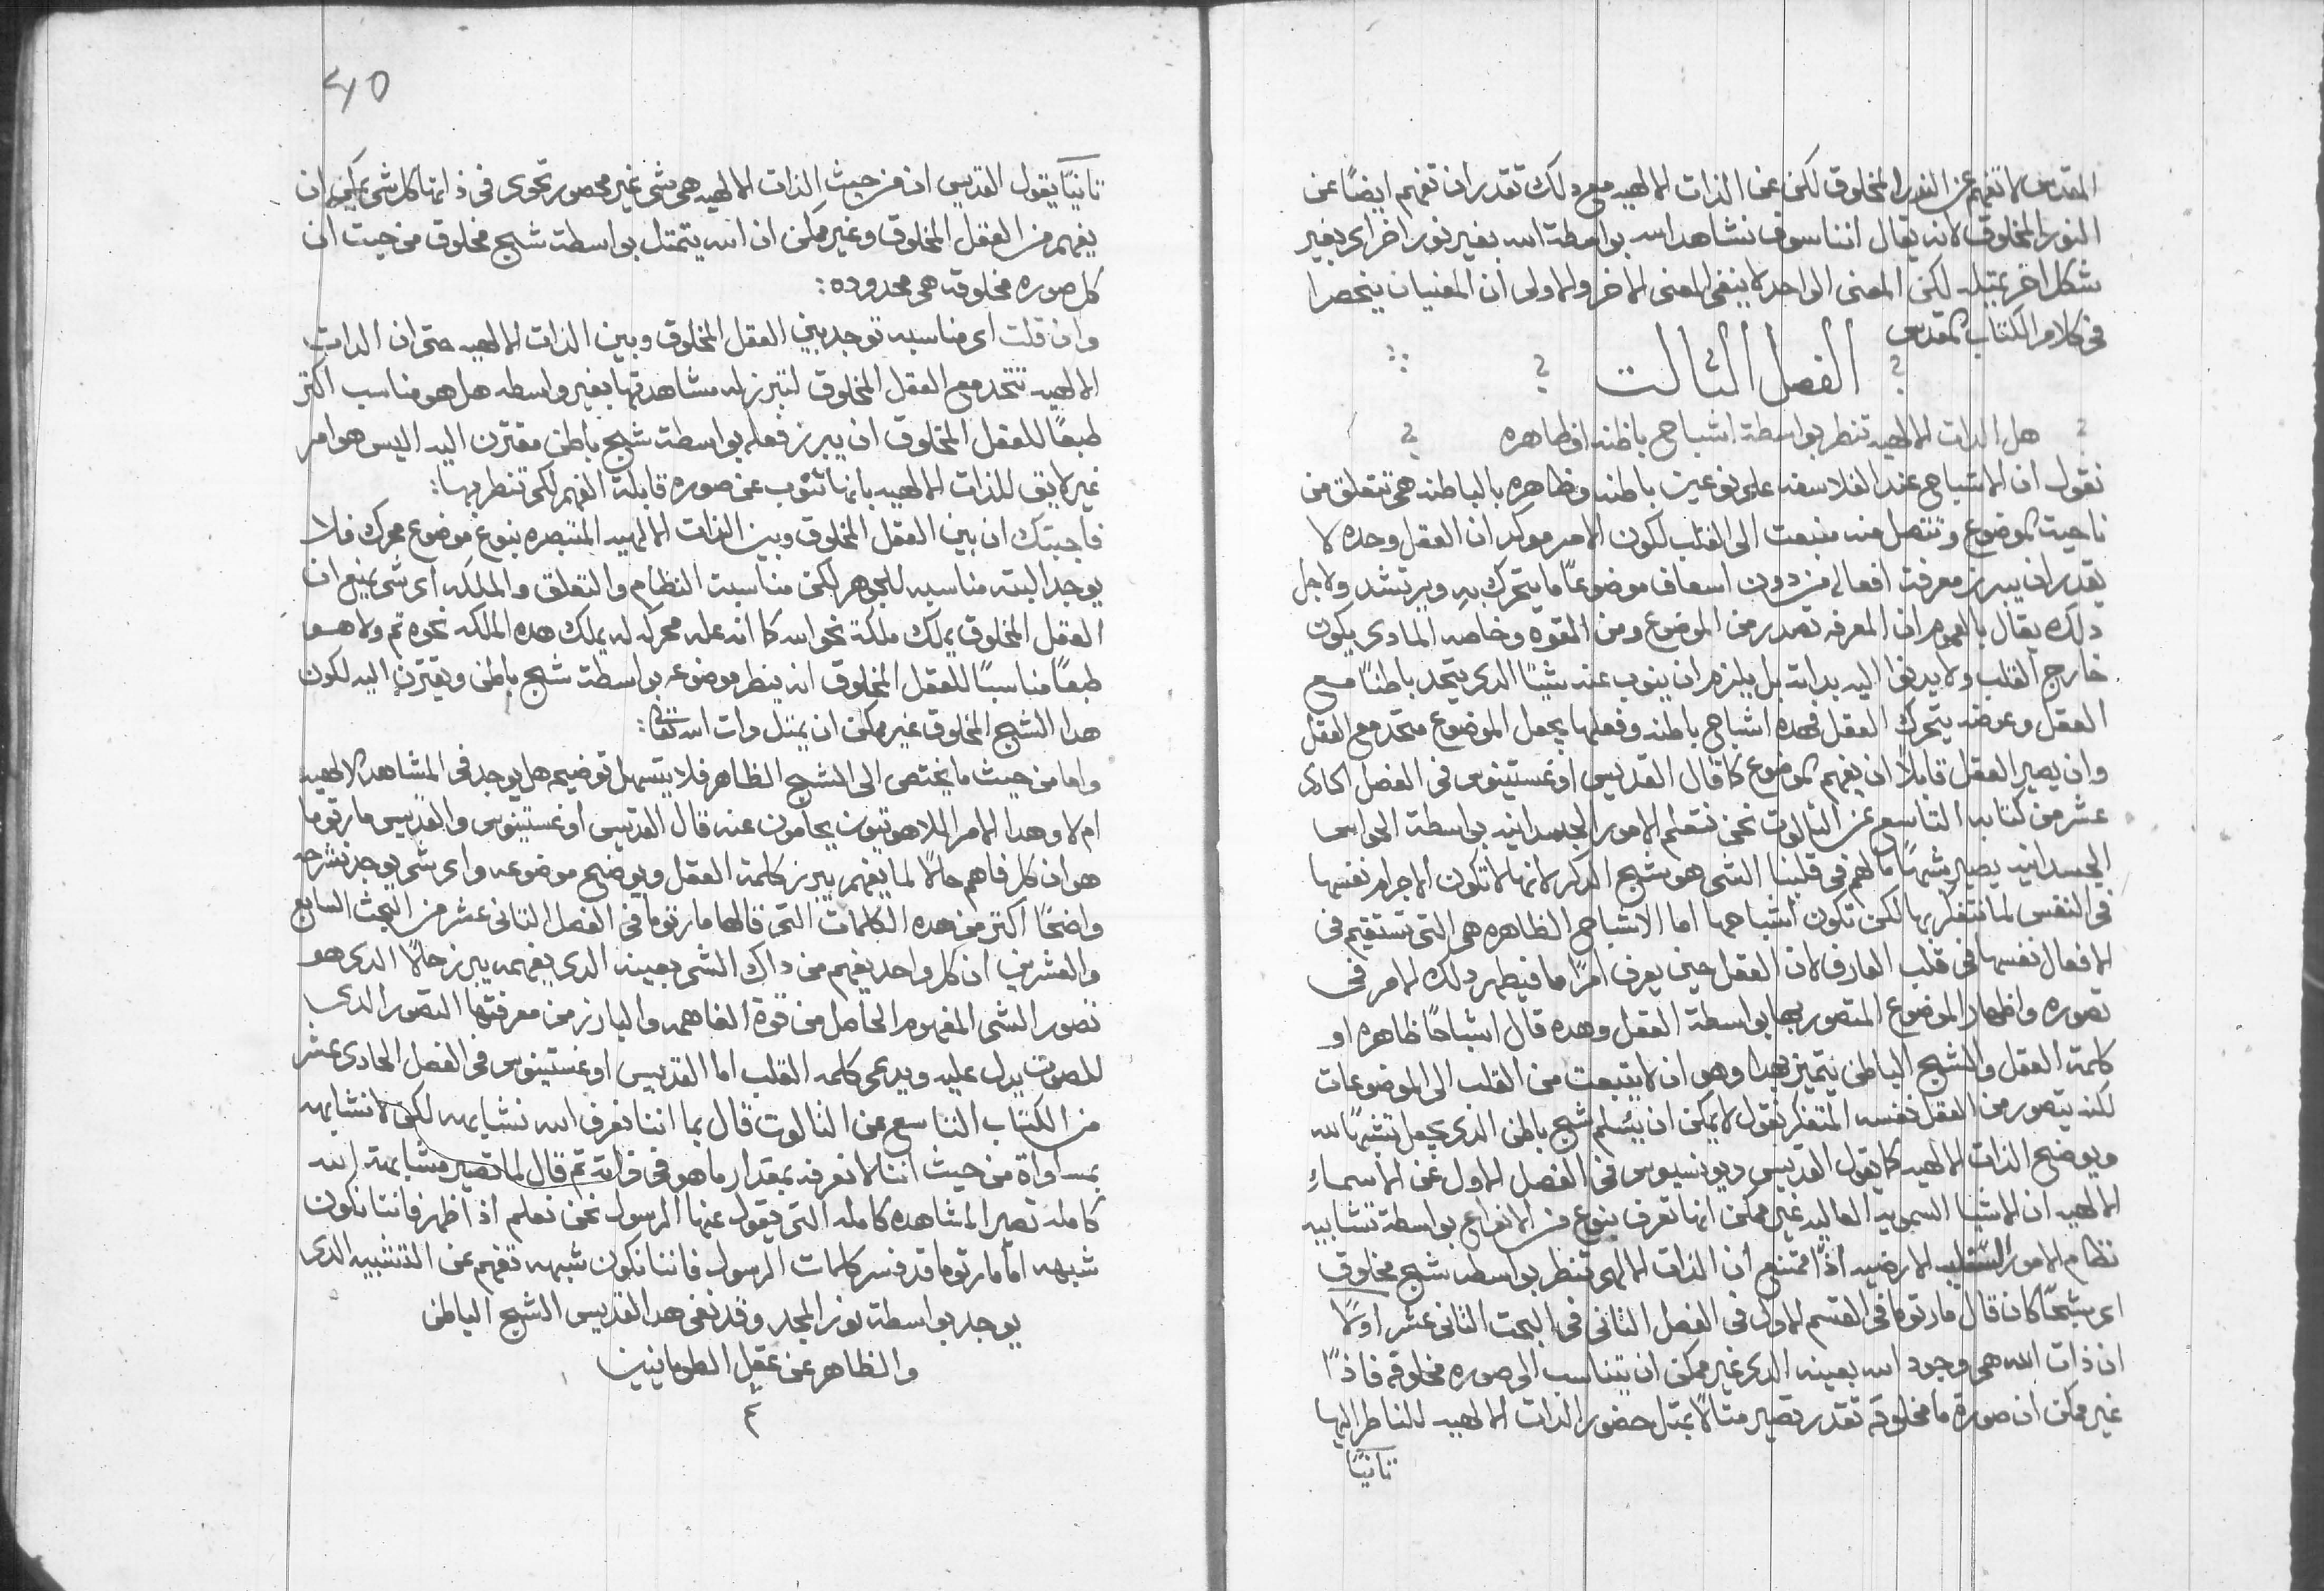 المقدس لا تفهم عن النور المخلوق لكن عن الذات الالهيه مع دلك تقدر ان تفهم ايضًا عن
النور المخلوق لانه يقال اننا سوف نشاهد الله بواسطة الله بغير نور اخر اى بغير
شكل اخر يمتله لكن المعنى الواحد لا ينفى المعنى الاخر والاولى ان المعنيان ينحصرا
فى كلام الكتاب المقدس
الفصل الثالت
هل الدات الالهيه تنظر بواسطة اشباح باطنه او ظاهره
نقول ان الاشباح عند الفلاسفه على نوعين باطنه وظاهره بالباطنه هى تتعلق من
ناحية الموضوع وتتصل منه منبعت الى القلب لكون الامر موكد ان العقل وحده لا
يقدر ان يبرز معرفت افعاله من دون اسعاف موضوعًا ما يتحرك به ويرتشد ولاجل
دلك يقال بالعموم ان المعرفه تصدر من الموضوع ومن القوه وخاصه المادى يكون
خارج القلب ولا يدنوا اليه بداته بل يلزم ان ينوب عنه شيًا الدى يتحد باطنًا مع
العقل وعوضه يتحرك العقل فهده اشباح باطنه وفعلها يجعل الموضوع متحد مع العقل
وان يصير العقل قابلًا ان يفهم الموضوع كما قال القديس اوغستينوس فى الفصل الحادى
عشر من كتابه التاسع عن الثالوت نحن نتعلم الامور الجسدانيه بواسطة الحواس
الجسدانيه يصير شبهًا ما لهم فى قلبنا الشى هو شبح الدكر لانها لا تكون الاجرام نفسها
فى النفس لما نتفكر بها لكن تكون اشباهها اما الاشباح الظاهره هى التى تستقيم فى
الافعال نفسها فى قلب العارف لان العقل حين يعرف امرًا ما فيظهر دلك الامر فى
تصوره واظهار الموضوع المتصور بها بواسطة العقل وهده قال اشباحًا ظاهره او
كلمة العقل والشبح الباطن يتميز بهدا وهو ان لا يتبعت من القلب الى الموضوعات
لكنه يتصور من العقل نفسه المتفكر نقول لا يمكن ان يتسلم شبح باطن الذى يجعل تشبهًا لله
ويوضح الذات الالهيه كما يقول القديس ديونسيوس فى الفصل الاول عن الاسماء
الالهيه ان الاشيا السمويه العاليه غير ممكن انها تعرف بنوع من الانواع بواسطة تشابيه
نظام الامور السفليه الارضيه اذًا فمتنع ان الذات الالهى تنظر بواسطه شبح مخلوق
اى شبحًا كان قال مارتوما فى القسم الاول فى الفصل التانى فى البحت التانى عشر اولًا
ان ذات الله هى وجود الله بعينه الدى غير ممكن ان يتناسب الى صوره مخلوقه فاذًا
غير ممكن ان صورة ما مخلوقه تقدر تصير متالًا يمتل حضور الدات الالهيه للناظر اليها
تانيًا
تانيًا يقول القديس ان من حيث الذات الالهيه هى شى غير محصور تحوى فى ذاتها كل شى يمكن ان
يفهم من العقل المخلوق وغير ممكن ان الله يتمتل بواسطة شبح مخلوق من حيت ان
كل صوره مخلوقه هى محدوده :
وان قلت اى مناسبه توجد بين العقل المخلوق وبين الذات الالهيه حتى ان الدات
الالهيه تتحد مع العقل المخلوق لتبرز له مشاهدتها بغير واسطه هل هو مناسب اكتر
طبعًا للعقل المخلوق ان يبرز فعله بواسطة شبح باطن مقترن اليه اليس هو امر
غير لايق للذات الالهيه بانها تنوب عن صوره قابلة الفهم لكى تنظر بها :
فاجبتك ان بين العقل المخلوق وبين الذات الالهيه المتبصره بنوع موضوع محرك فلا
يوجد البته مناسبه للجوهر لكن مناسبت النظام والتعلق والملكه اى شى يمنع ان
العقل المخلوق يملك ملكة نحو الله كما انه عله محركه له يملك هده الملكه نحوه تم ولا هو
طبعًا مناسبًا للعقل المخلوق انه ينظر موضوعه بواسطة شبح باطن ويقترن اليه لكون
هدا الشبح المخلوق غير ممكن ان يمتل دات الله تعا :
واما من حيث ما يختص الى الشبح الظاهر فلا يتسهل توضيحه هل يوجد فى المشاهده الالهيه
ام لا وهدا الامر اللاهوتيون يحامون عنه قال القديس اوغستينوس والقديس مارتوما
هو ان كل فاهم حالًا لما يفهم يبرز كلمة العقل ويوضح موضوعه واى شى يوجد نشرحه
واضحًا اكتر من هده الكلمات التى قالها مارتوما فى الفصل التانى عشر من البحت السابع
والعشرين ان كل واحد يفهم من داك الشى بعينه الدى يفهمه يبرز حالًا الدى هو
تصور الشى المفهوم الحاصل من قوة الفاهمه والبارز من معرفتها التصور الدى
للصوت يدل عليه ويدعى كلمه القلب اما القديس اوغستينوس فى الفصل الحادى عشر
من الكتاب التاسع عن التالوت قال بما اننا نعرف الله نشابهه لكن لا نشابهه
بمساواة من حيث اننا لا نعرفه بمقدار ما هو فى ذاته تم قال لما تصير مشابهة الله
كامله تصير المشاهده كامله التى يقول عنها الرسول نحن نعلم اذ اظهر فاننا نكون
شبهه اما مارتوما قد فسر كلمات الرسول فاننا نكون شبهه تفهم عن التشبيه الدى
يوجد بواسطة نور المجد وقد نفى هدا القديس الشبح الباطن
والظاهر عن عقل الطوبانيين